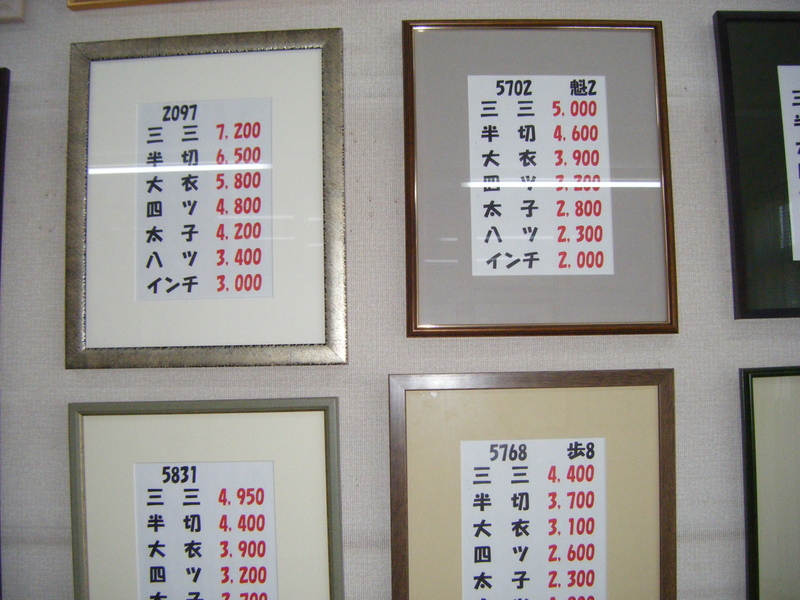 2097
三 三 7,200
半 切 6,500
大 衣 5,800
四 ツ 4,800
太 子 4,200
八 ツ 3,400
インチ 3,000
5702 魁2
三 三 5,000
半 切 4,600
大 衣 3,900
四 ツ 3,200
太 子 2,800
八 ツ 2,300
インチ 2,000
5831
三 三 4,950
半 切 4,400
大 衣 3,900
四 ツ 3,200
5768 歩8
三 三 4,400
半 切 3,700
大 衣 3,100
四 ツ 2,600
太 子 2,300